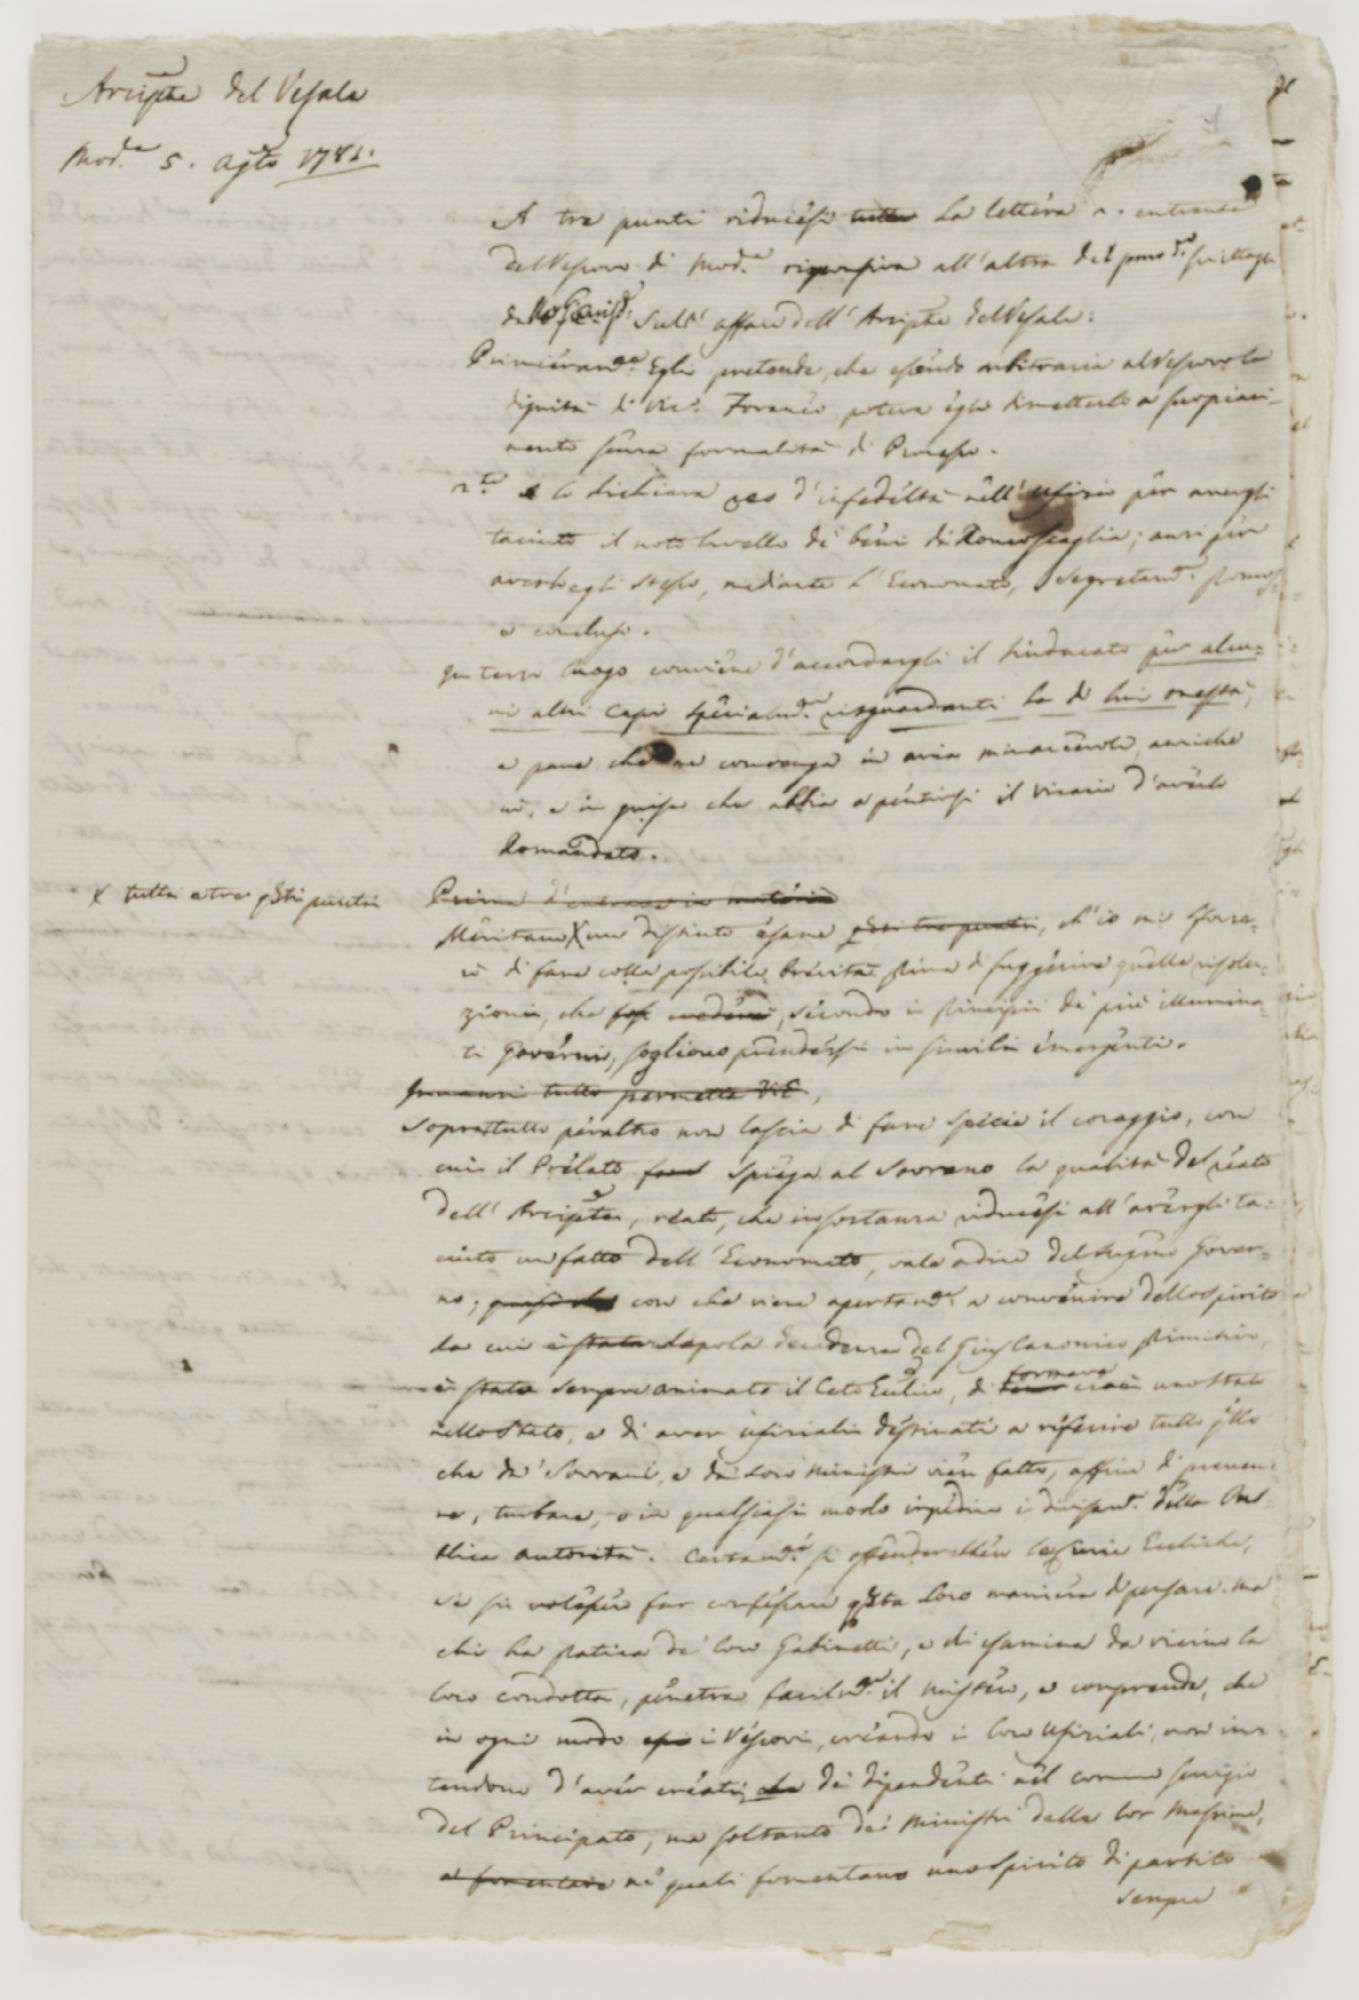 Arcipte del Vesale
Mod.a 5. Agto 1781.
A tre punti riducesi tutta la lettera 2. entrante
del Vescovo di Mod.a responsiva all'altra del
da sull' affare dell' Arcipte del Vesale:
Primieram.e Egli pretende, che essendo arbitraria al Vescovo la
dignità di Vic.o Foraneo poteva egli dimetterlo a suo piaci-
mento senza formalità di Processo.
2.to lo dichiara reo d'infedeltà nell' Ufizio per avergli
taciuto il noto livello de' beni di Roncoscaglia; anzi per
averlo egli stesso, mediante l'Economato, segretam.e promos-
o concluso.
In terzo luogo conviene d'accordargli il Sindacato per alcu-
ni altri capi specialm.e risguardanti la di lui onestà,
e pare che ne convenga in aria minaccevole, anziche
nò, e in guisa che abbia a pentirsi il Vicario d'averlo
domandato.
X tutti e tre qsti punti
Prima d'entrare in materia
Meritano X un distinto esame qsti tre punti, ch'io mi sforze-
rò di fare colla possibile brevità prima di suggerire quelle risolu-
zioni, che secondo i principii de' più illumina-
ti Governi, sogliono prendersi in simili emergenti.
Innanzi tutto permetta V.E,
Soprattutto peraltro non lascia di fare specie il coraggio, con
cui il Prelato spiega al Sovrano la qualità del reato
dell' Arcipte, reato, che in sostanza riducesi all'avergli ta-
ciuto un fatto dell' Economato, vale a dire del supmo Gover-
no; con che viene apertam.e a convenire dello spirito
da cui è stata dopo la decadenza del Gius Canonico primitivo,
è stato sempre animato il Ceto Eccl.co, di formare uno Stato
nello Stato, e di aver ufiziali destinati a riferire tutto qllo
che da' Sovrani, e da loro Ministri vien fatto, affine di preveni-
re, turbare, o in qualsiasi modo impedire i divisam.ti della Pub-
blica autorità. Certam.e si offenderebbero le Curie Ecclíche,
se si volesser far confessare qsta loro maniera di pensare. Ma
chi ha pratica de' loro Gabinetti, e chi esamina da vicino la
loro condotta, penetra facilm.e il mistero, e comprende, che
in ogni modo i Vescovi, creando i loro Ufiziali, non in-
tendono d'aver creati che de' dipendenti nel comune servigio
del Principato, ma soltanto dei Ministri delle lor Massime,
e fomentare ne' quali fomentano uno spirito di partito
sempre